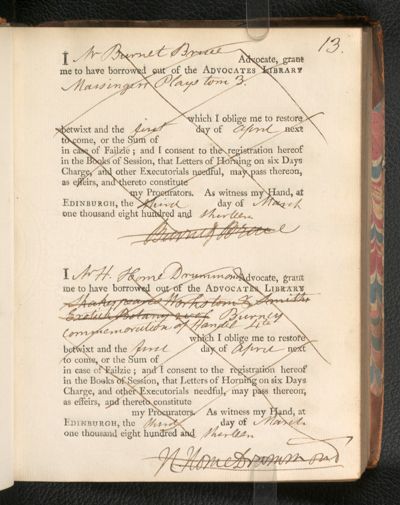 13.
I Mr Burnet Bruce Advocate, grant
me to have borrowed out of the ADVOCATES LIBRARY
Massingers Plays tom 3.
which I oblige me to restore
betwixt and the first day of April next
to come, or the Sum of
in case of Failzie; and I consent to the registration hereof
in the Books of Session, that Letters of Horning on six Days
Charge, and other Executorials needful, may pass thereon,
as effeirs, and thereto constitute
my Procurators. As witness my Hand, at
EDINBURGH, the third day of March
one thousand eight hundred and thirteen
Burnet Bruce
I Mr H. Home Drummond Advocate, grant
me to have borrowed out of the ADVOCATES LIBRARY
Shakespeares Works tom Smiths
English Botany Burney
Commemoration of Handel 4to
which I oblige me to restore
betwixt and the first day of April next
to come, or the Sum of
in case of Failzie; and I consent to the registration hereof
in the Books of Session, that Letters of Horning on six Days
Charge, and other Executorials needful, may pass thereon,
as effeirs, and thereto constitute
my Procurators. As witness my Hand, at
EDINBURGH, the third day of March
one thousand eight hundred and thirteen
H Home Drummond